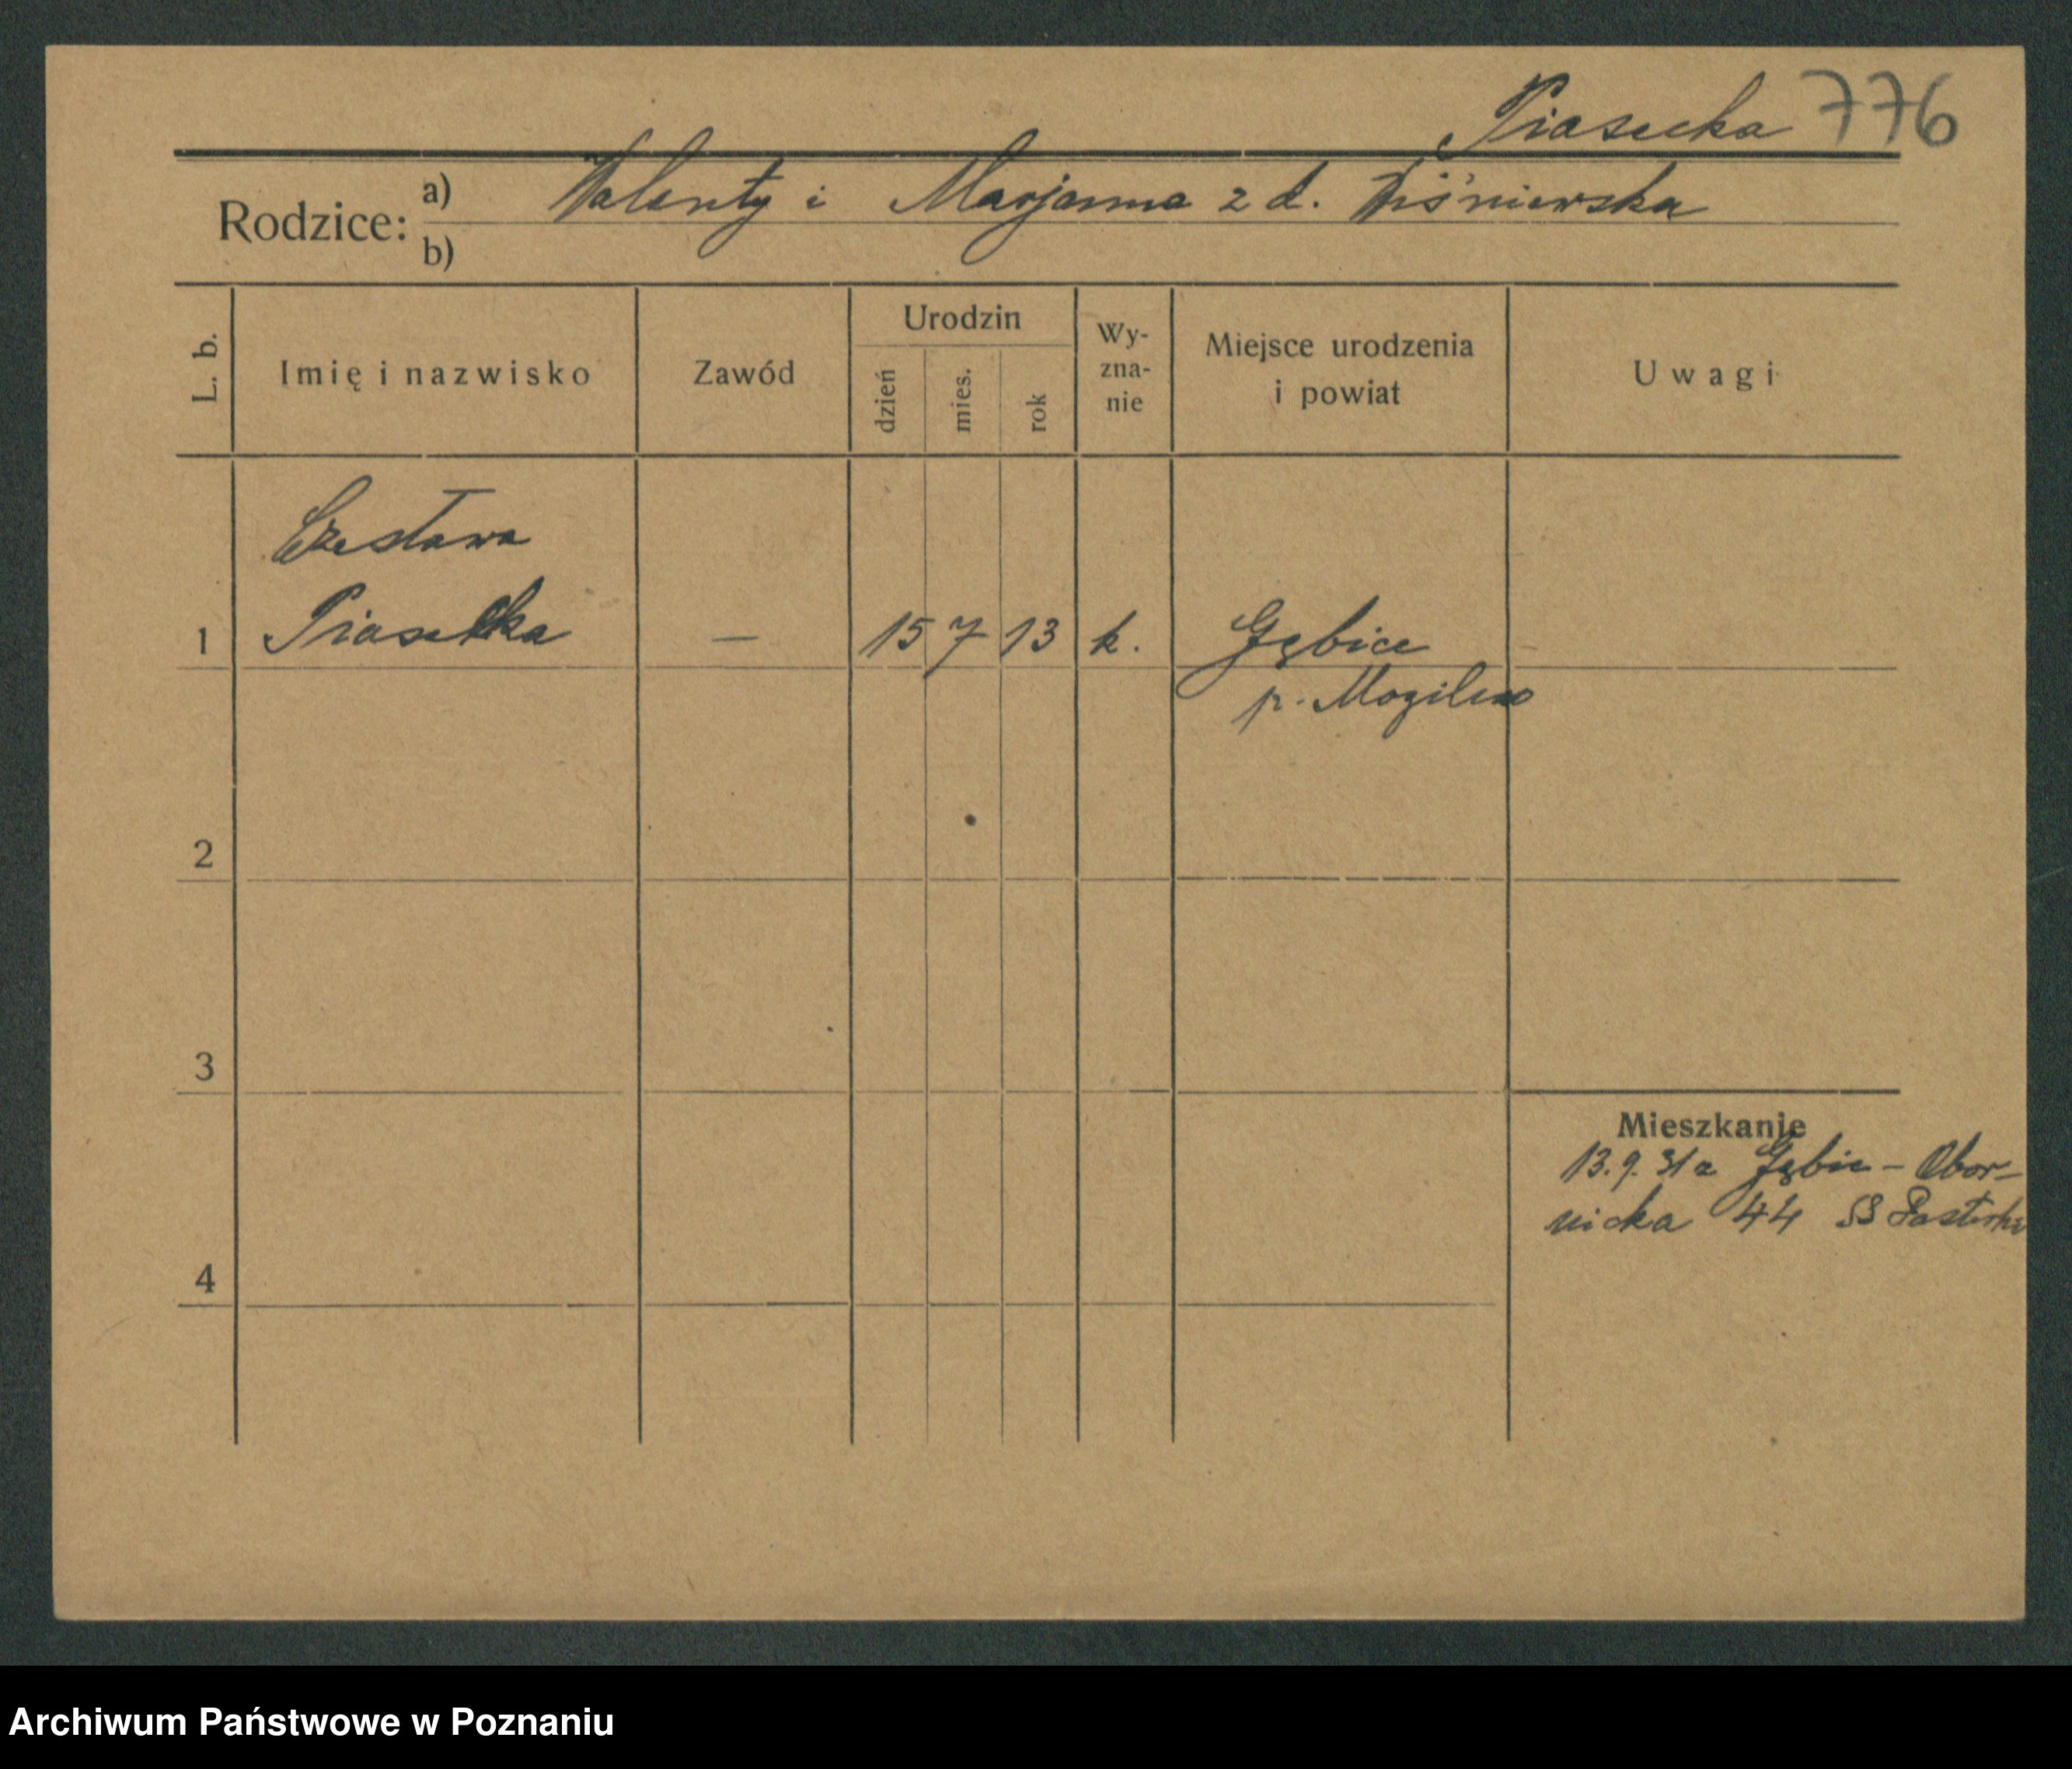 Piasecka 776
Rodzice:
a) Walenty i Marjanna z d. Wiśniewska
b)
L. b.
Imię i nazwisko
Zawód
Urodzin
dzień
mies.
rok
Wy-
zna-
nie
Miejsce urodzenia
i powiat
Uwagi
Czesława
1 Piasecka — 15 7 13 k. Gębice
p. Mogilno
2
3
Mieszkanie
13.9.31 z Gębic - Obor-
nicka 44 SS
4
Archiwum Państwowe w Poznaniu